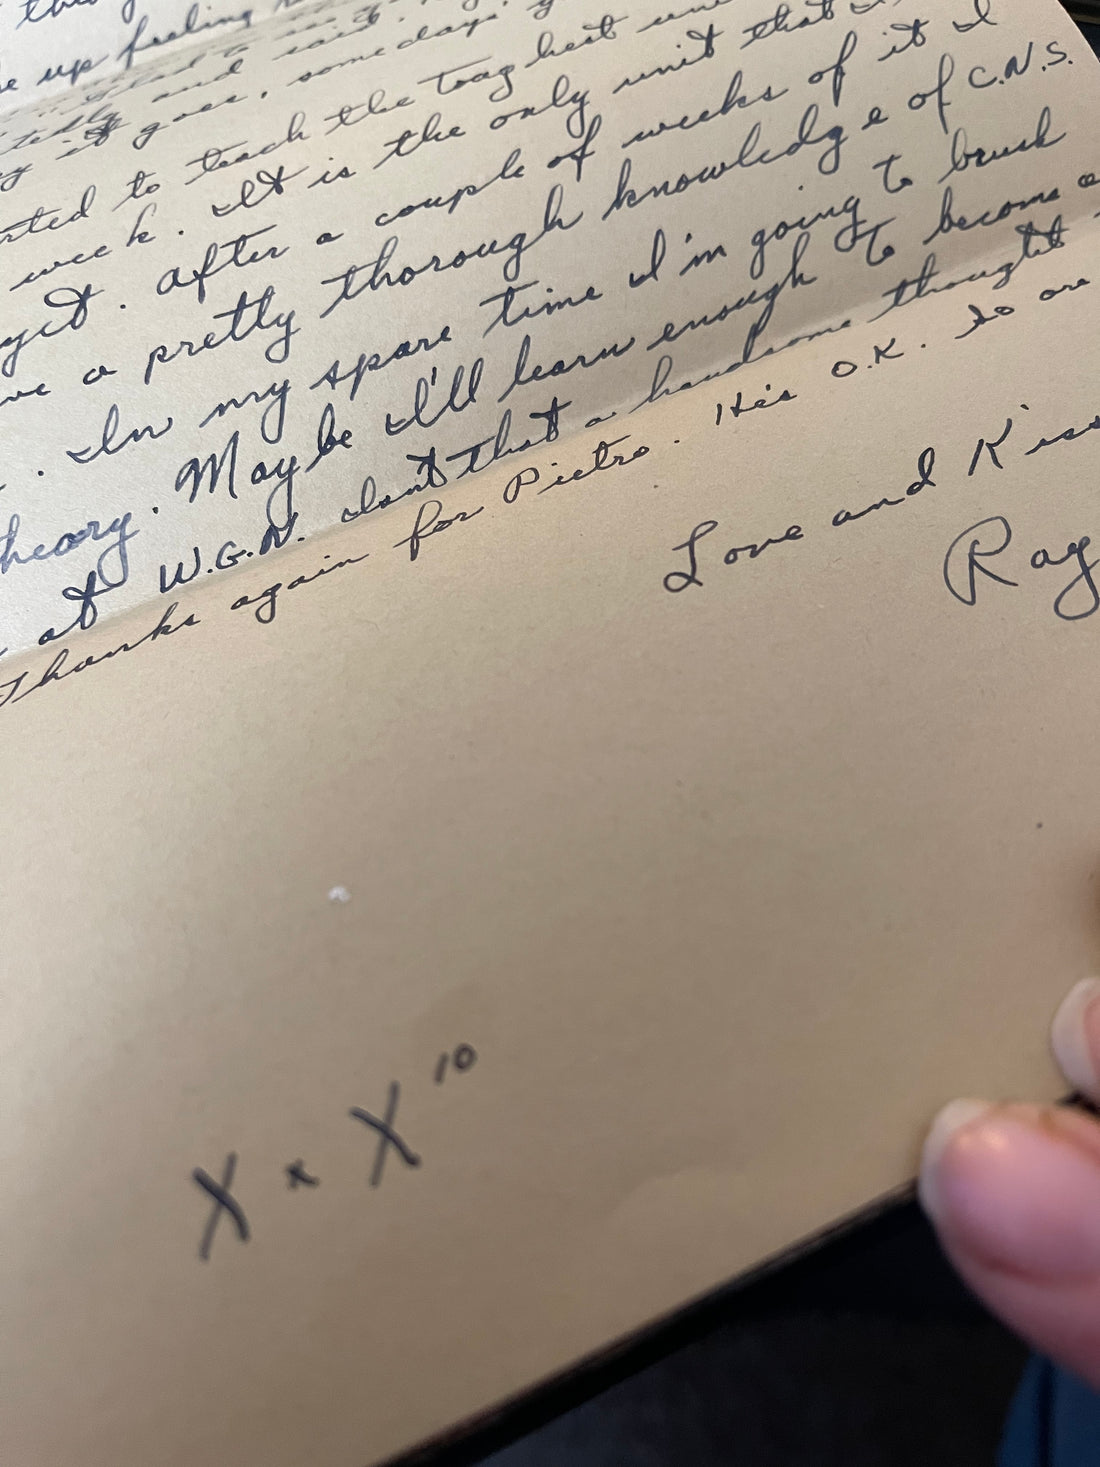 up feeling
and said.
it goes, some days
to teach the toughest
week. It is the only unit that
yet. After a couple of weeks of it I
a pretty thorough knowledge of C.N.S.
. In my spare time I'm going to brush
theory. Maybe I'll learn enough to become
at W.G.N. Isn't that a handsome thought
Thanks again for Pietro. He's O.K. So are
Love and Kiss
Ray
X x X 10